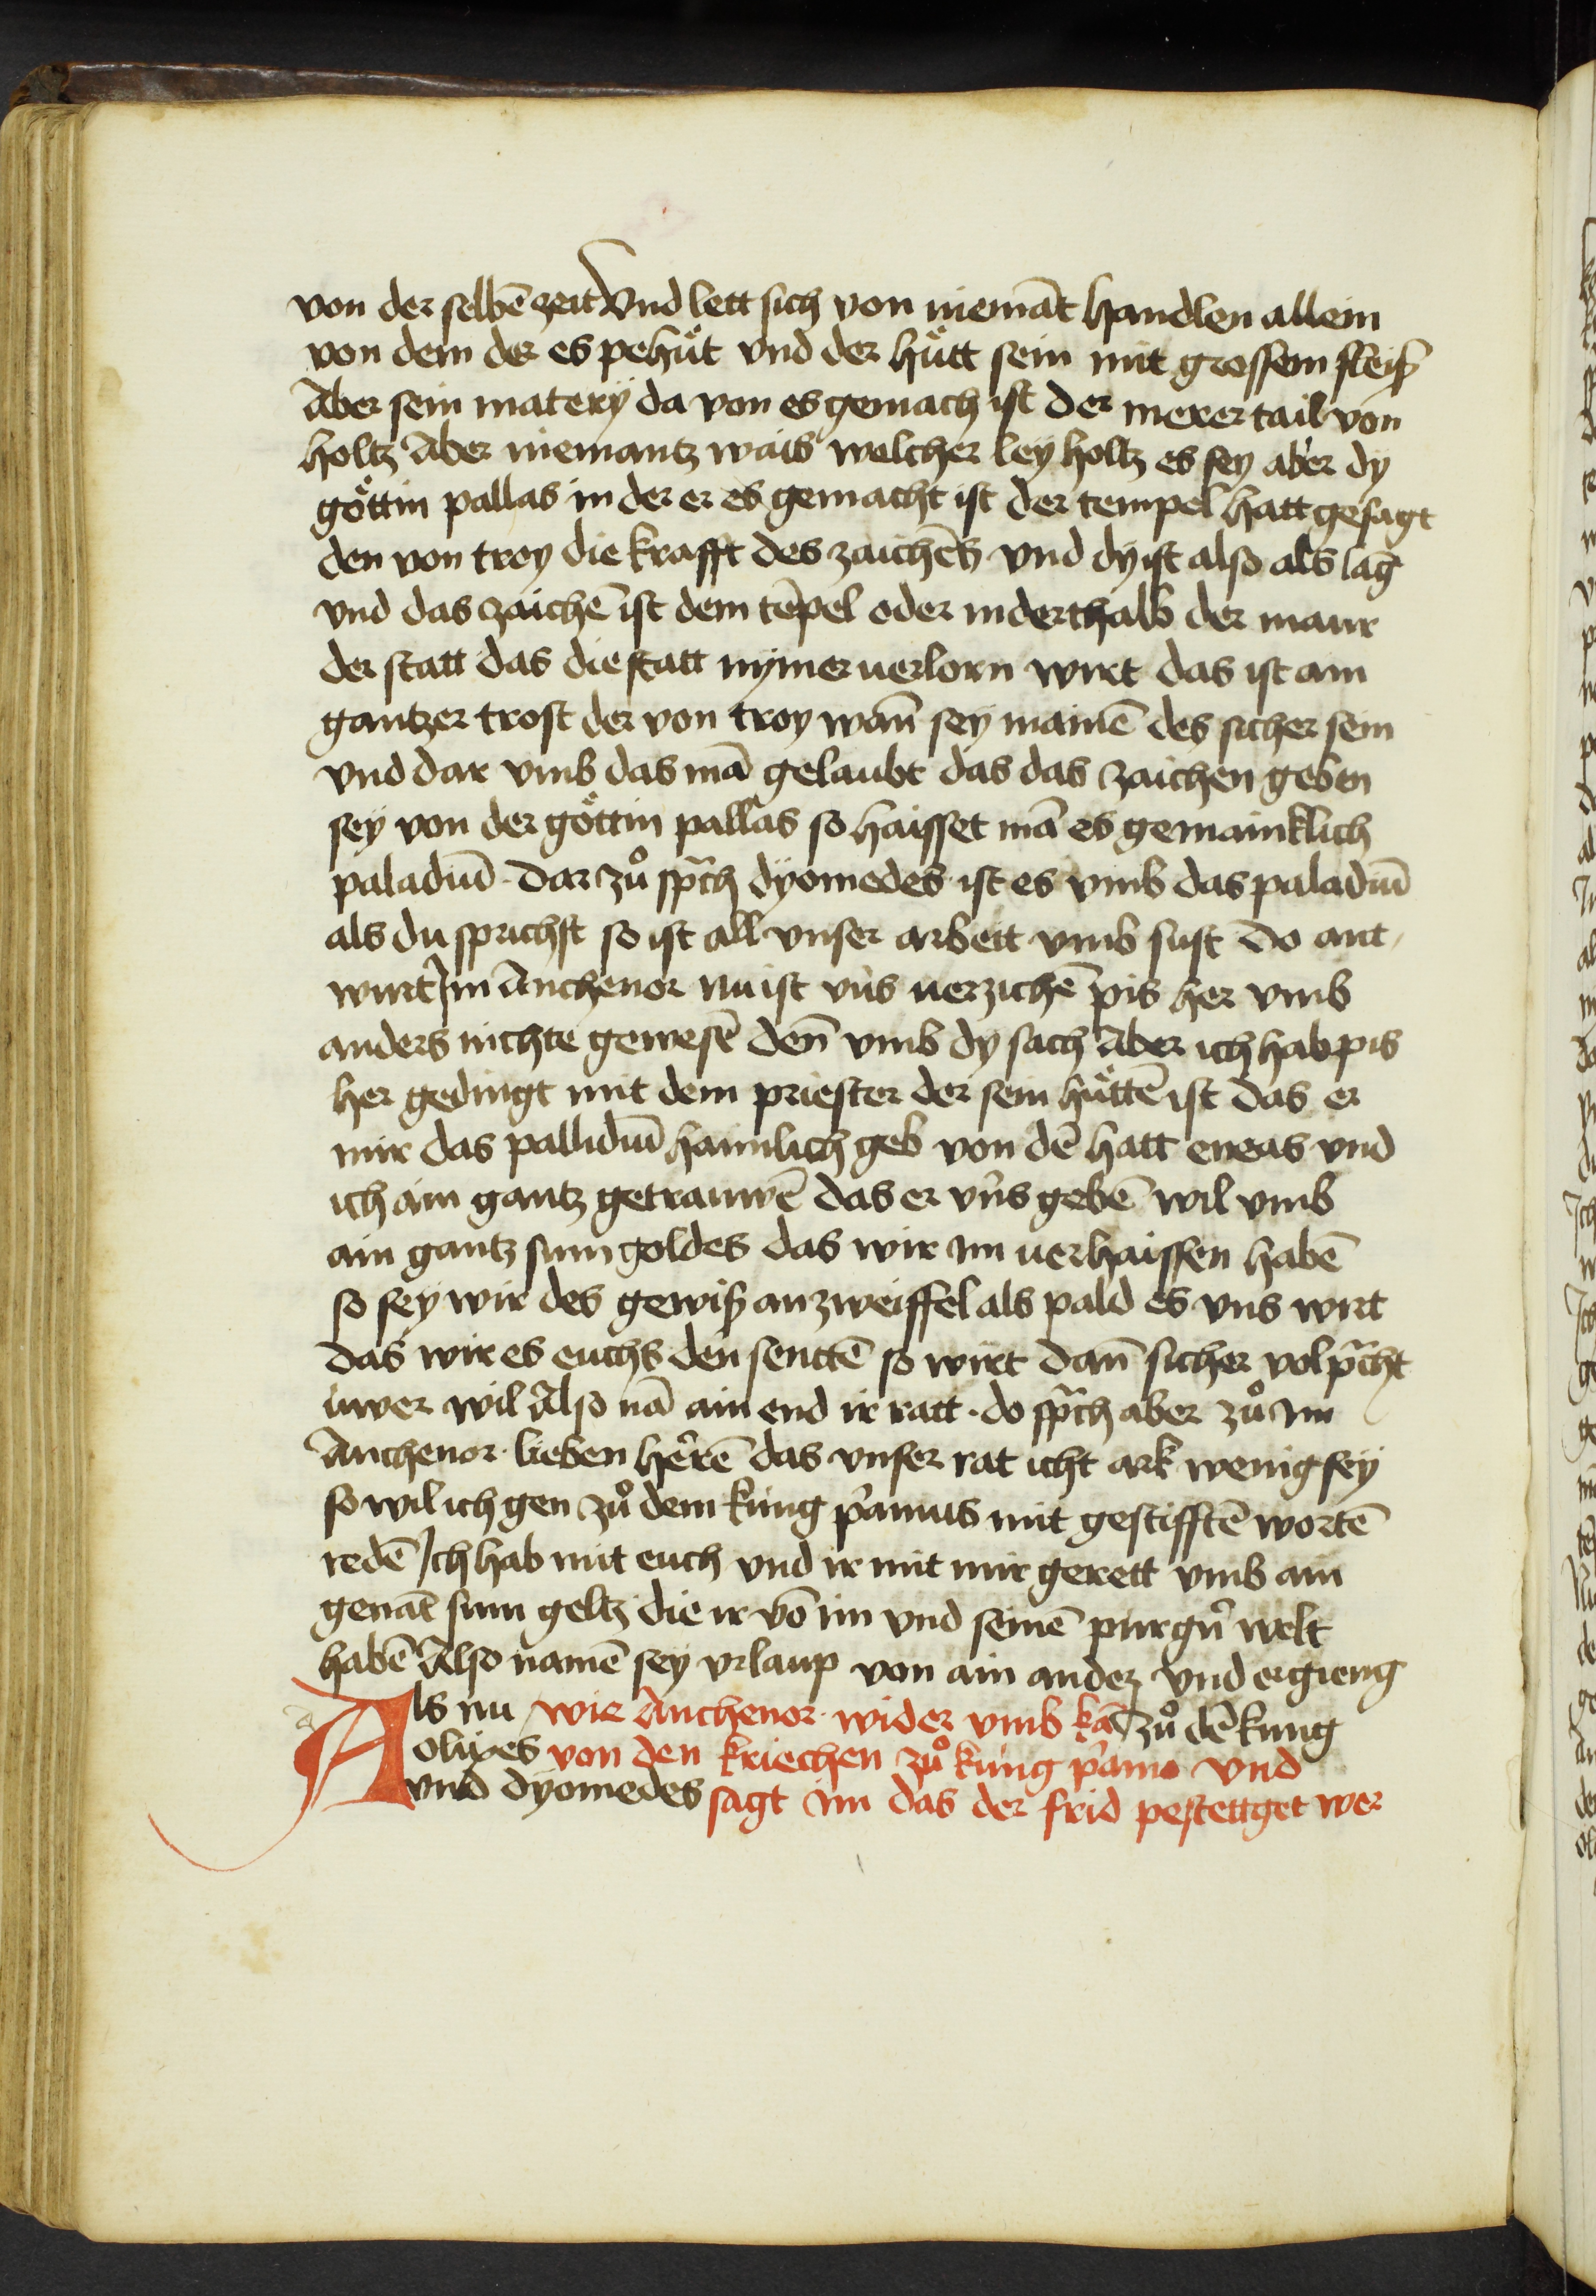 von der selbē zeit Vnd lett sich von niemāt handlen allein
von dem der es pehüt vnd der hütt sein mit grossem fleiß
Aber sein matery da von es gemach ist der merer tail von
holtz Aber niemantz wais welcher ley holtz es sey aber dy
göttin pallas in der er es gemacht ist der tempel hatt gesagt
den von troy die krafft des zaichēs vnd dy ist also als lāg
vnd das zaichē ist dem tēpel oder inderthalb der maur
der statt das die statt nymer uerlorn wirt das ist ain
gantzer trost der von troy wañ sey mainē des sicher sein
vnd dar vmb das mā gelaubt das das zaichen geben
sey von der göttin pallas so haisset mā es gemainklich
paladiū · Dar zů sprch dyomedes · ist es vmb das paladiū
als du sprichst so ist all vnser arbett vmb sust Do ant,
wurt Im Anthenor Nu ist vns uerzichē pis her vmb
anders nichte gewesē deñ vmb dy sach Aber ich hab pis
her gedingt mit dem priester der sein hüttē ist das er
mir das pallidiū haimlich geb von dē hatt eneas vnd
ich ain gantz getrauwē das er vns gebē wil vmb
ain gantz sum goldes das wir im uerhaissen habē
so sey wir des gewiß an zweiffel als pald es vns wirt
das wir es euchs den senttē so wirt dañ sicher volprcht
iuwer wil Also nā ain end ir ratt · do sprch aber zů im
Anthenor · lieben herrē das vnser rat icht ark wenig sey
so wil ich gen zů dem kung priamus mit gestifftē wortē
redē Ich hab mit euch vnd ir mit mir gerett vmb ain
genāt sum geltz die ir vō im vnd seinē purgern welt
habē Also namē sey vrlaup von ain ander vnd ergieng
Als nu wie Anthenor · wider vmb kā zů dē kung
olixes von den kriechen zů kung priamo vnd
vnd dyomedes sagt im das der frid pestettget wer